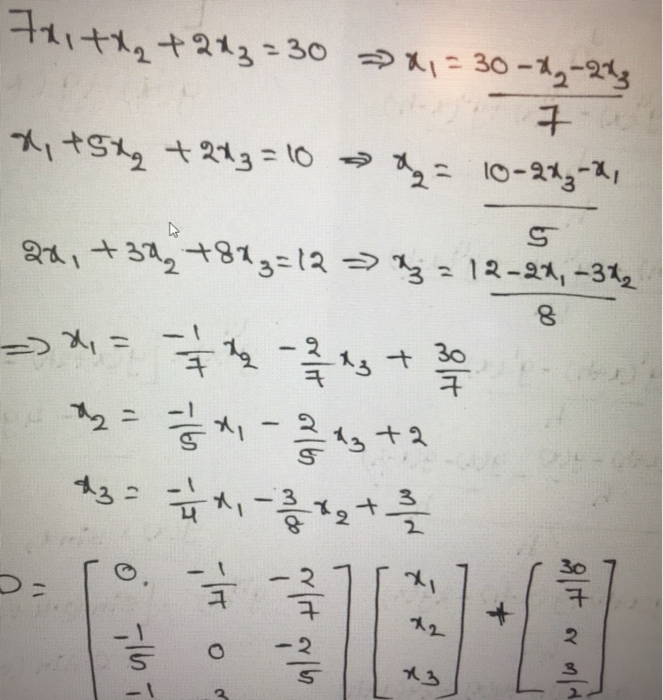 7x₁ + x₂ + 2x₃ = 30 ⇒ x₁ = (30 - x₂ - 2x₃)/7
x₁ + 5x₂ + 2x₃ = 10 ⇒ x₂ = (10 - 2x₃ - x₁)/5
2x₁ + 3x₂ + 8x₃ = 12 ⇒ x₃ = (12 - 2x₁ - 3x₂)/8
⇒ x₁ = -1/7 x₂ - 2/7 x₃ + 30/7
x₂ = -1/5 x₁ - 2/5 x₃ + 2
x₃ = -1/4 x₁ - 3/8 x₂ + 3/2
= [0. -1/7 -2/7] [x₁] + [30/7]
[-1/5 0 -2/5] [x₂] [2]
[-1 3 [x₃] [3/2]